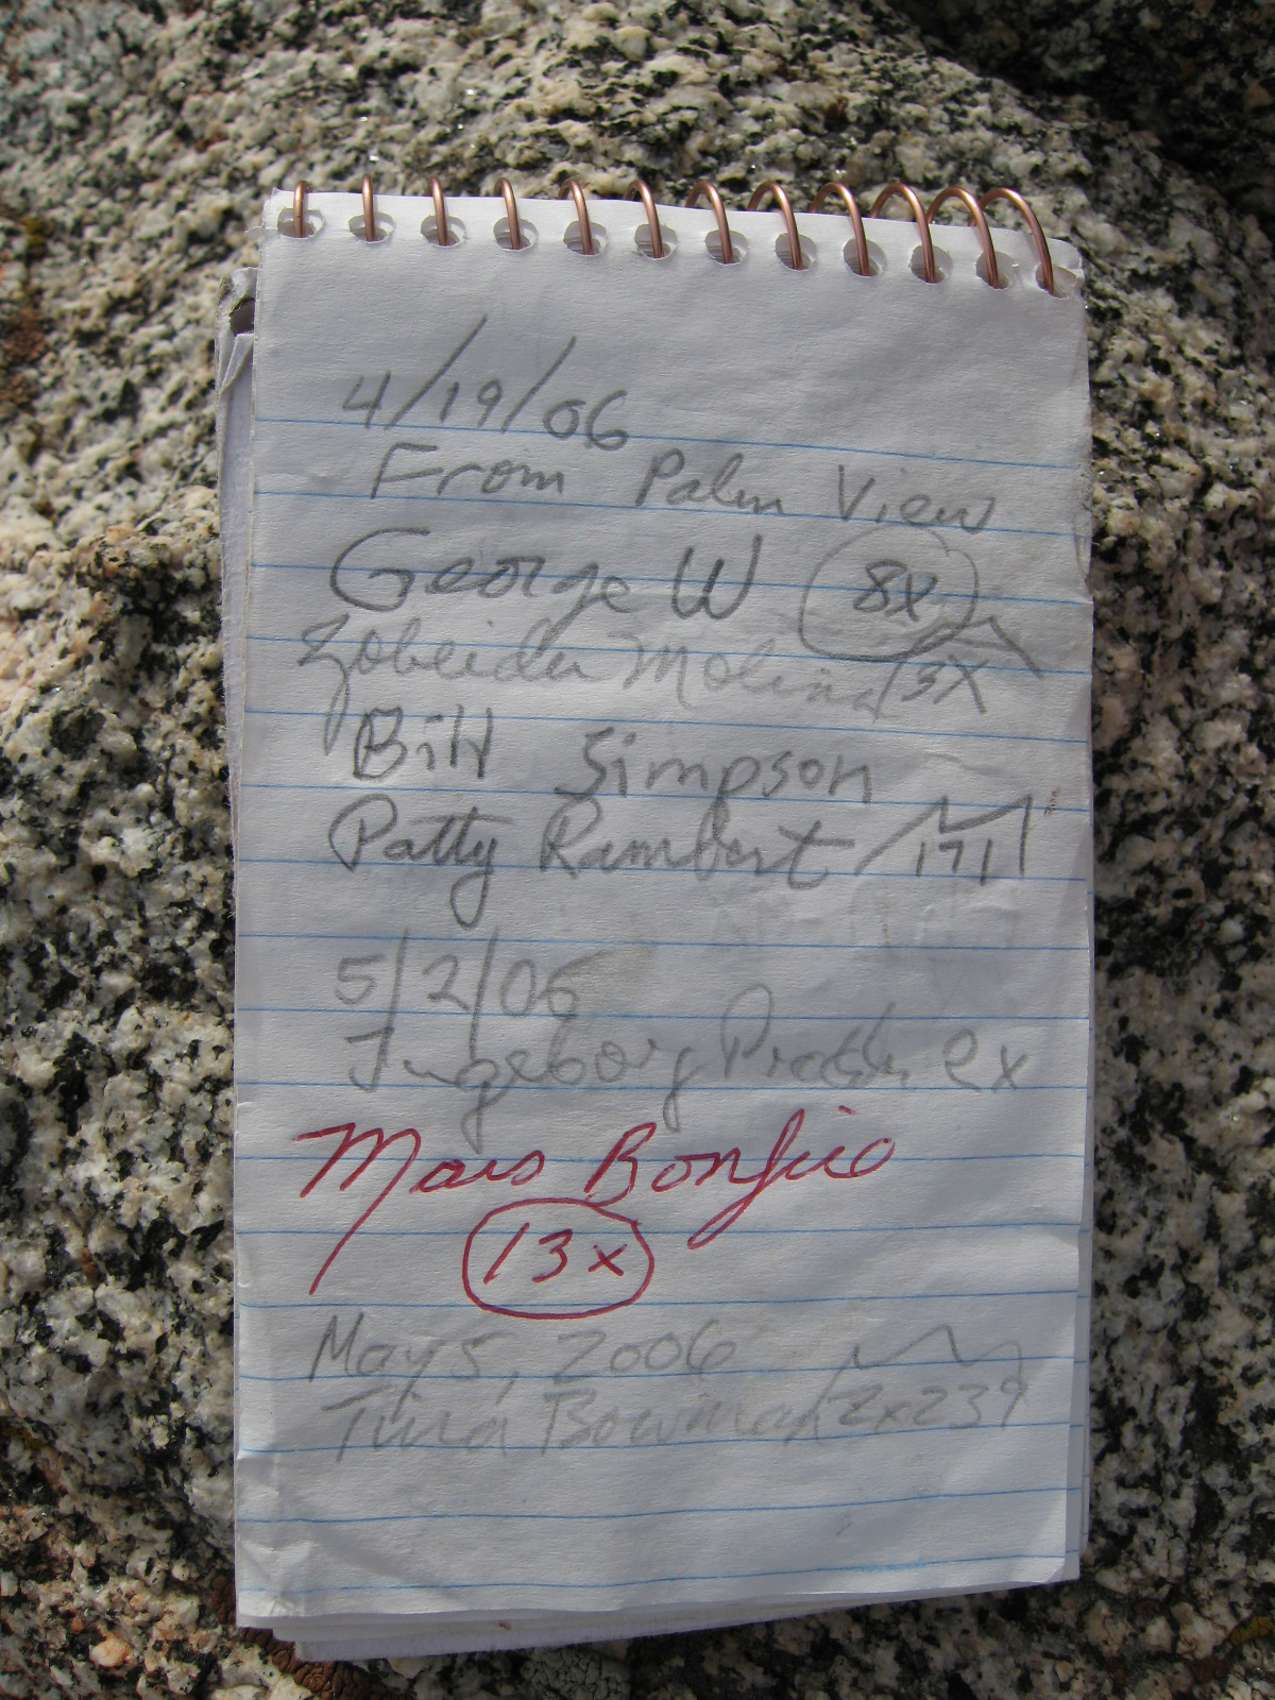 4/19/06
From Palm View
George W 8x
Zobeida Molina 13x
Bill Simpson
Patty Rambert 171
5/2/06
Ingeborg 2x
Mars Bonfire
13x
May 5, 2006
Tina Bowman 2x239